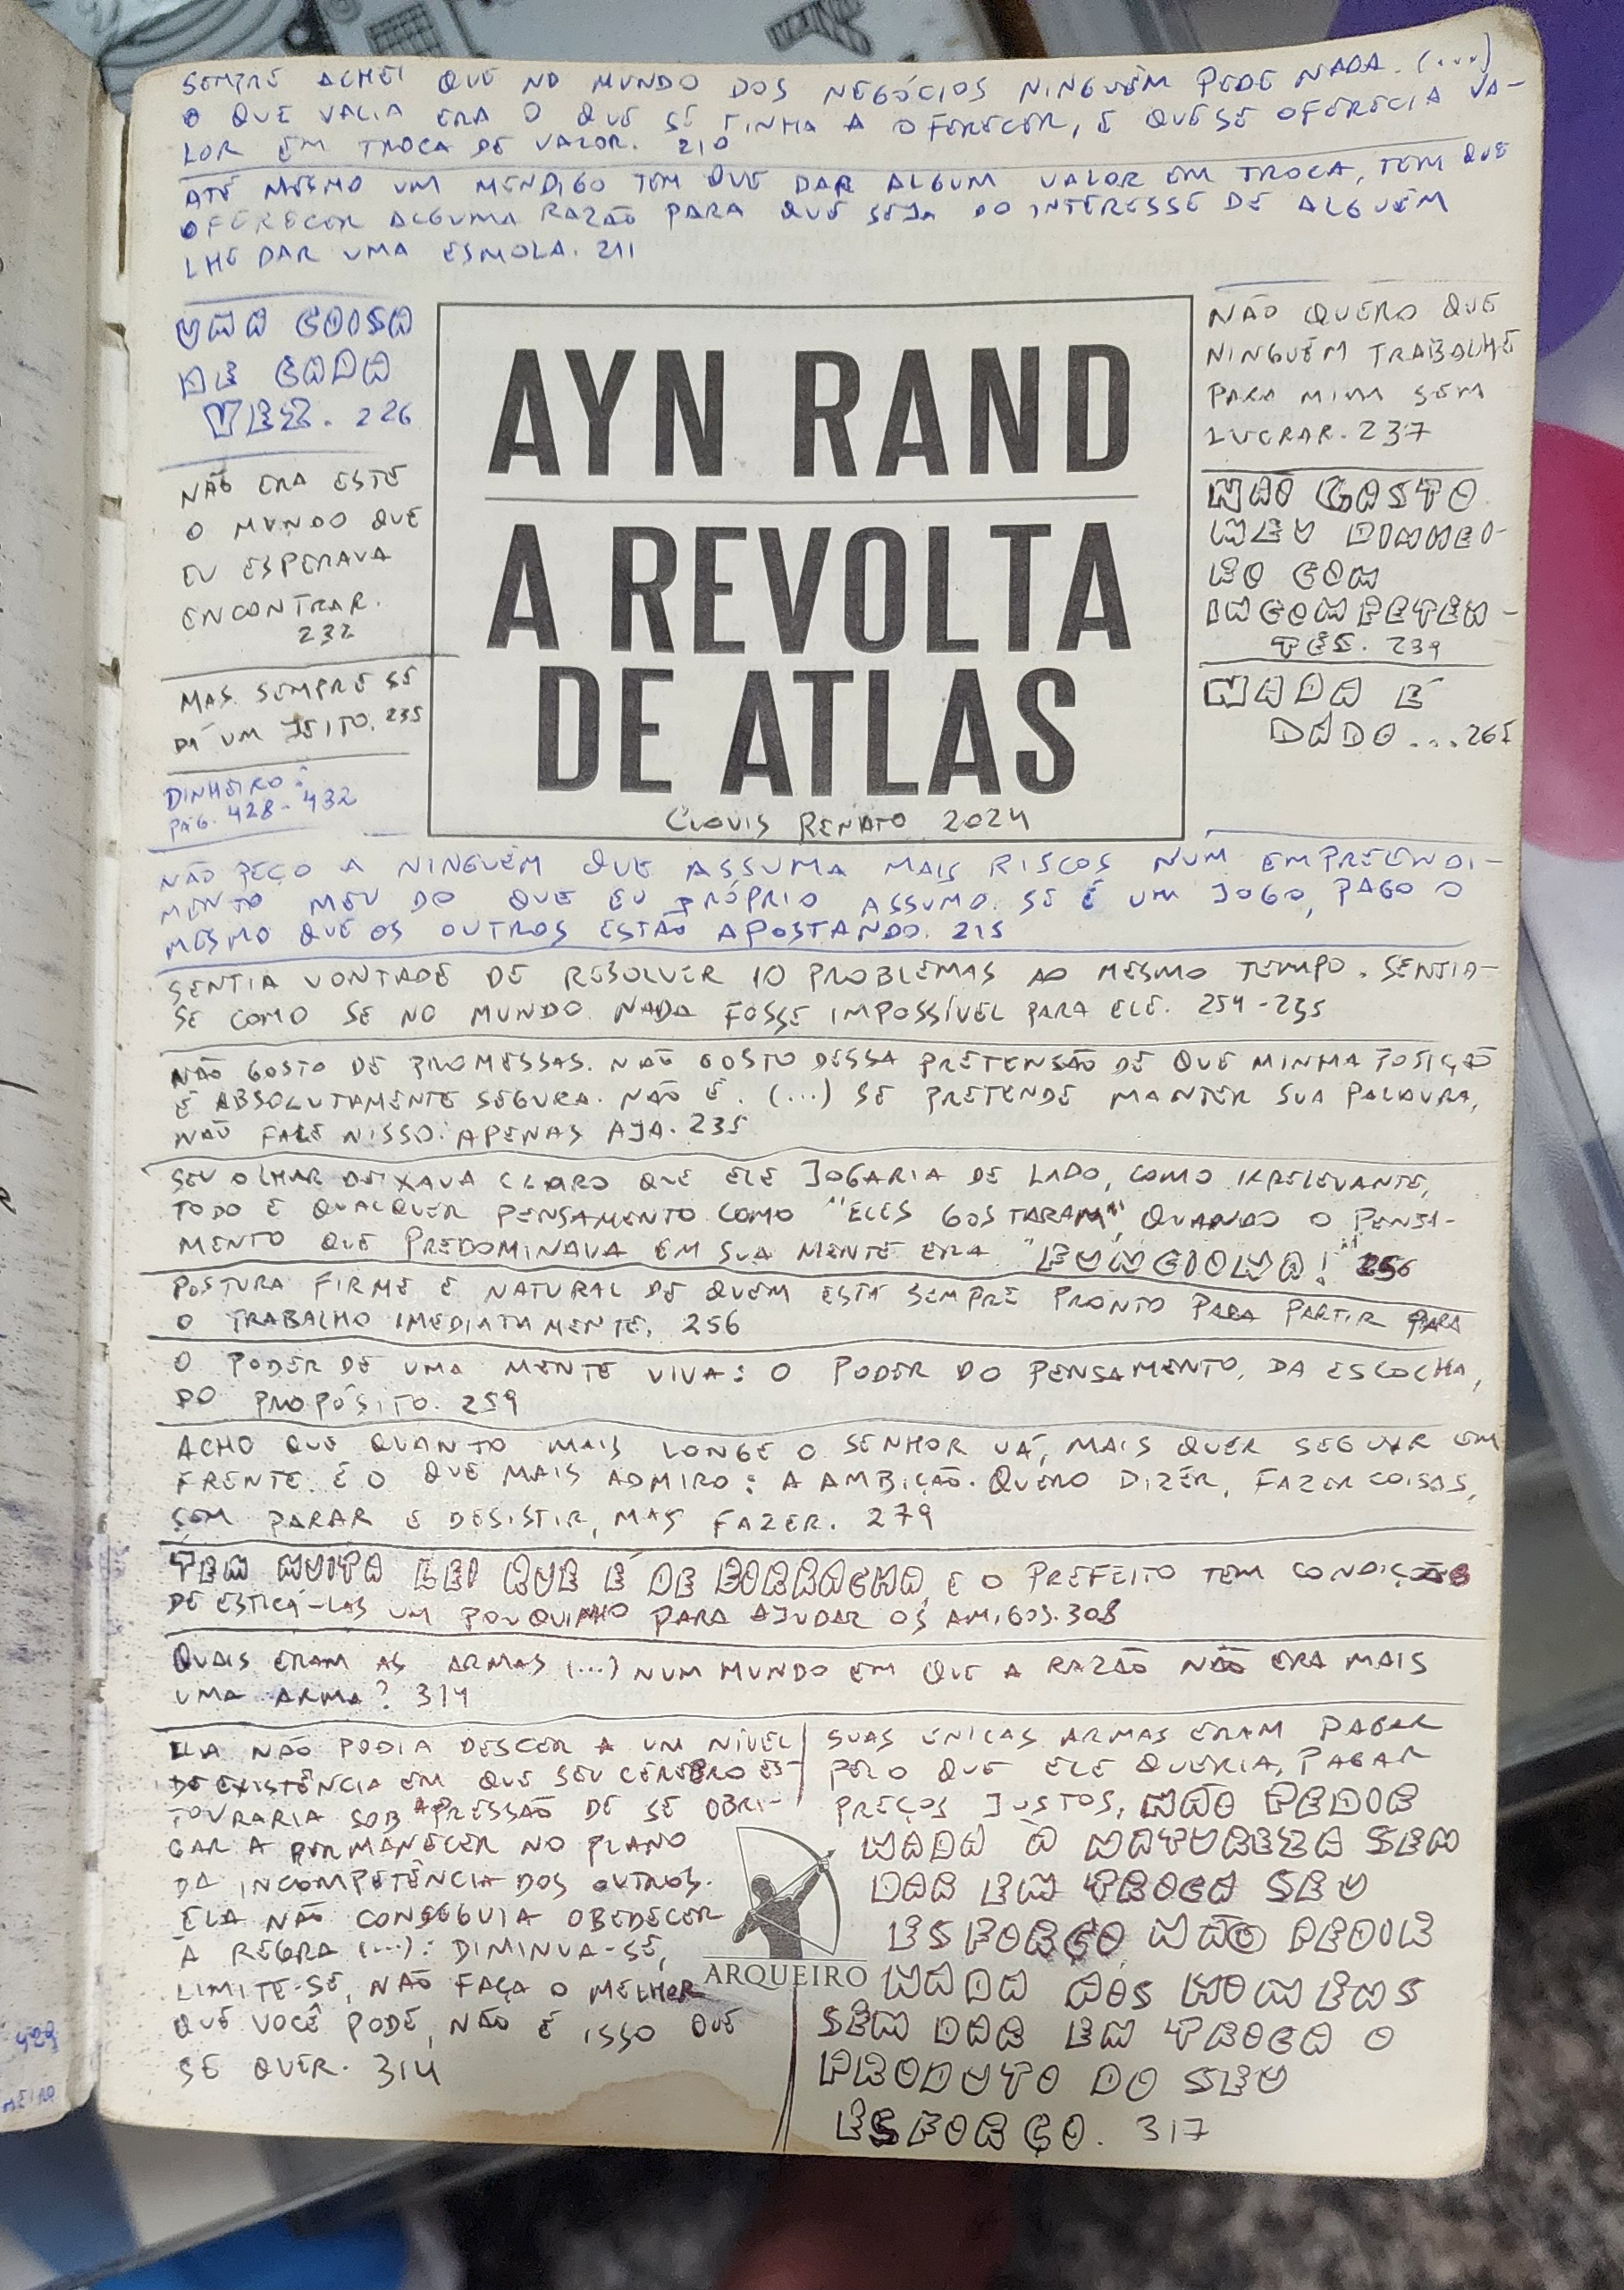 SEMPRE ACHEI QUE NO MUNDO DOS NEGÓCIOS NINGUÉM PEDE NADA. (...)
O QUE VALIA ERA O QUE SE TINHA A OFERECER, E QUE SE OFERECIA VA-
LOR EM TROCA DE VALOR. 210
ATÉ MESMO UM MENDIGO TEM QUE DAR ALGUM VALOR EM TROCA, TEM QUE
OFERECER ALGUMA RAZÃO PARA QUE SEJA DO INTERESSE DE ALGUÉM
LHE DAR UMA ESMOLA. 211
UMA COISA
DE CADA
VEZ. 226
NÃO ERA ESTE
O MUNDO QUE
EU ESPERAVA
ENCONTRAR.
232
MAS SEMPRE SE
DÁ UM JEITO. 235
DINHEIRO:
PÁG. 428-432
AYN RAND
A REVOLTA
DE ATLAS
CLOVIS RENATO 2024
NÃO QUERO QUE
NINGUÉM TRABALHE
PARA MIM SEM
LUCRAR. 237
NÃO GASTO
MEU DINHEI-
RO COM
INCOMPETEN-
TES. 239
NADA É
DADO... 265
NÃO PEÇO A NINGUÉM QUE ASSUMA MAIS RISCOS NUM EMPREENDI-
MENTO MEU DO QUE EU PRÓPRIO ASSUMO. SE É UM JOGO, PAGO O
MESMO QUE OS OUTROS ESTÃO APOSTANDO. 215
SENTIA VONTADE DE RESOLVER 10 PROBLEMAS AO MESMO TEMPO. SENTIA-
SE COMO SE NO MUNDO NADA FOSSE IMPOSSÍVEL PARA ELE. 254-255
NÃO GOSTO DE PROMESSAS. NÃO GOSTO DESSA PRETENSÃO DE QUE MINHA POSIÇÃO
É ABSOLUTAMENTE SEGURA. NÃO É. (...) SE PRETENDE MANTER SUA PALAVRA,
NÃO FALE NISSO. APENAS AJA. 235
SEU OLHAR DEIXAVA CLARO QUE ELE JOGARIA DE LADO, COMO IRRELEVANTE,
TODO E QUALQUER PENSAMENTO COMO "ELES GOSTARAM", QUANDO O PENSA-
MENTO QUE PREDOMINAVA EM SUA MENTE ERA "FUNCIONA!" 256
POSTURA FIRME E NATURAL DE QUEM ESTÁ SEMPRE PRONTO PARA PARTIR PARA
O TRABALHO IMEDIATAMENTE. 256
O PODER DE UMA MENTE VIVA: O PODER DO PENSAMENTO, DA ESCOLHA,
DO PROPÓSITO. 259
ACHO QUE QUANTO MAIS LONGE O SENHOR VÁ, MAIS QUER SEGUIR EM
FRENTE. É O QUE MAIS ADMIRO: A AMBIÇÃO. QUERO DIZER, FAZER COISAS,
SEM PARAR E DESISTIR, MAS FAZER. 279
TEM MUITA LEI QUE É DE BORRACHA, E O PREFEITO TEM CONDIÇÕES
DE ESTICÁ-LAS UM POUQUINHO PARA AJUDAR OS AMIGOS. 308
QUAIS ERAM AS ARMAS (...) NUM MUNDO EM QUE A RAZÃO NÃO ERA MAIS
UMA ARMA? 314
ELA NÃO PODIA DESCER A UM NÍVEL
DE EXISTÊNCIA EM QUE SEU CÉREBRO ES-
TOURARIA SOB A PRESSÃO DE SE OBRI-
GAR A PERMANECER NO PLANO
DA INCOMPETÊNCIA DOS OUTROS.
ELA NÃO CONSEGUIA OBEDECER
À REGRA (...): DIMINUA-SE,
LIMITE-SE, NÃO FAÇA O MELHOR
QUE VOCÊ PODE, NÃO É ISSO QUE
SE QUER. 314
SUAS ÚNICAS ARMAS ERAM PAGAR
PELO QUE ELE QUERIA, PAGAR
PREÇOS JUSTOS, NÃO PEDIR
NADA À NATUREZA SEM
DAR EM TROCA SEU
ESFORÇO, NÃO PEDIR
NADA AOS HOMENS
SEM DAR EM TROCA O
PRODUTO DO SEU
ESFORÇO. 317
ARQUEIRO